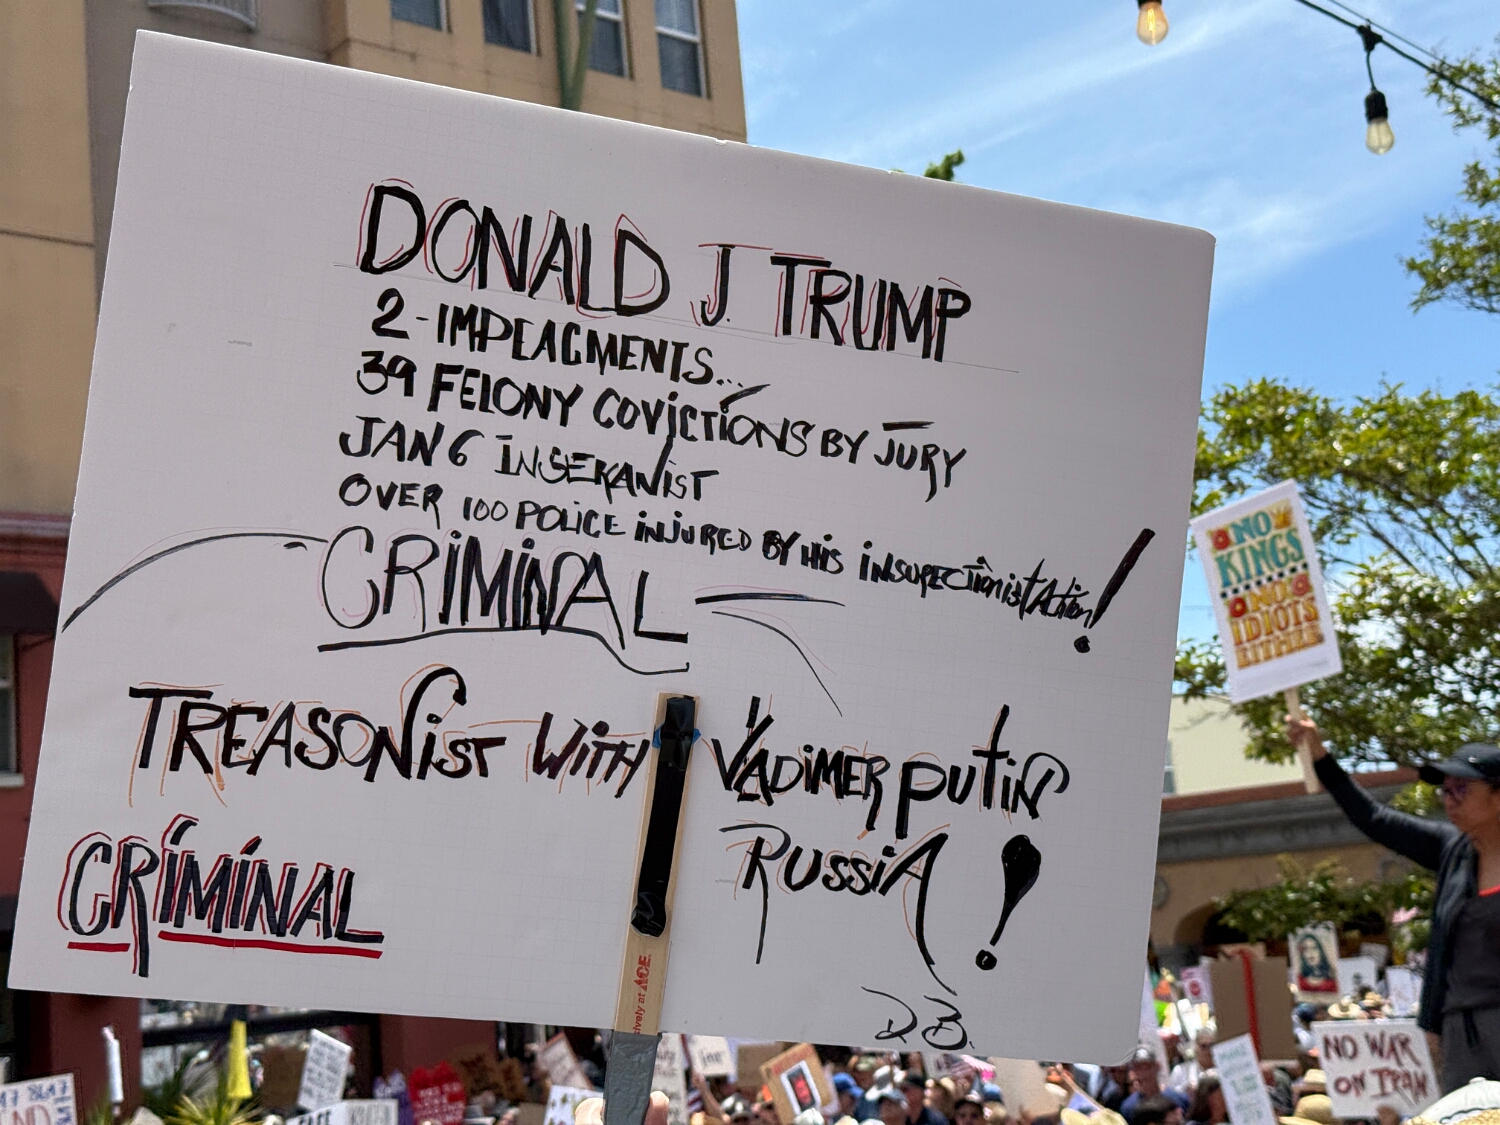 DONALD J. TRUMP
2-IMPEACMENTS...
39 FELONY COVICTIONS BY JURY
JAN 6 INSERANIST
OVER 100 POLICE INJURED BY HIS INSUPECTIONIST ACTION!
CRIMINAL
TREASONIST WITH VLADIMER PUTIN
RUSSIA!
CRIMINAL
D.B.
sively at ACE.
NO
KINGS
ONLY
IDIOTS
EITHER
NO WAR
ON IRAN